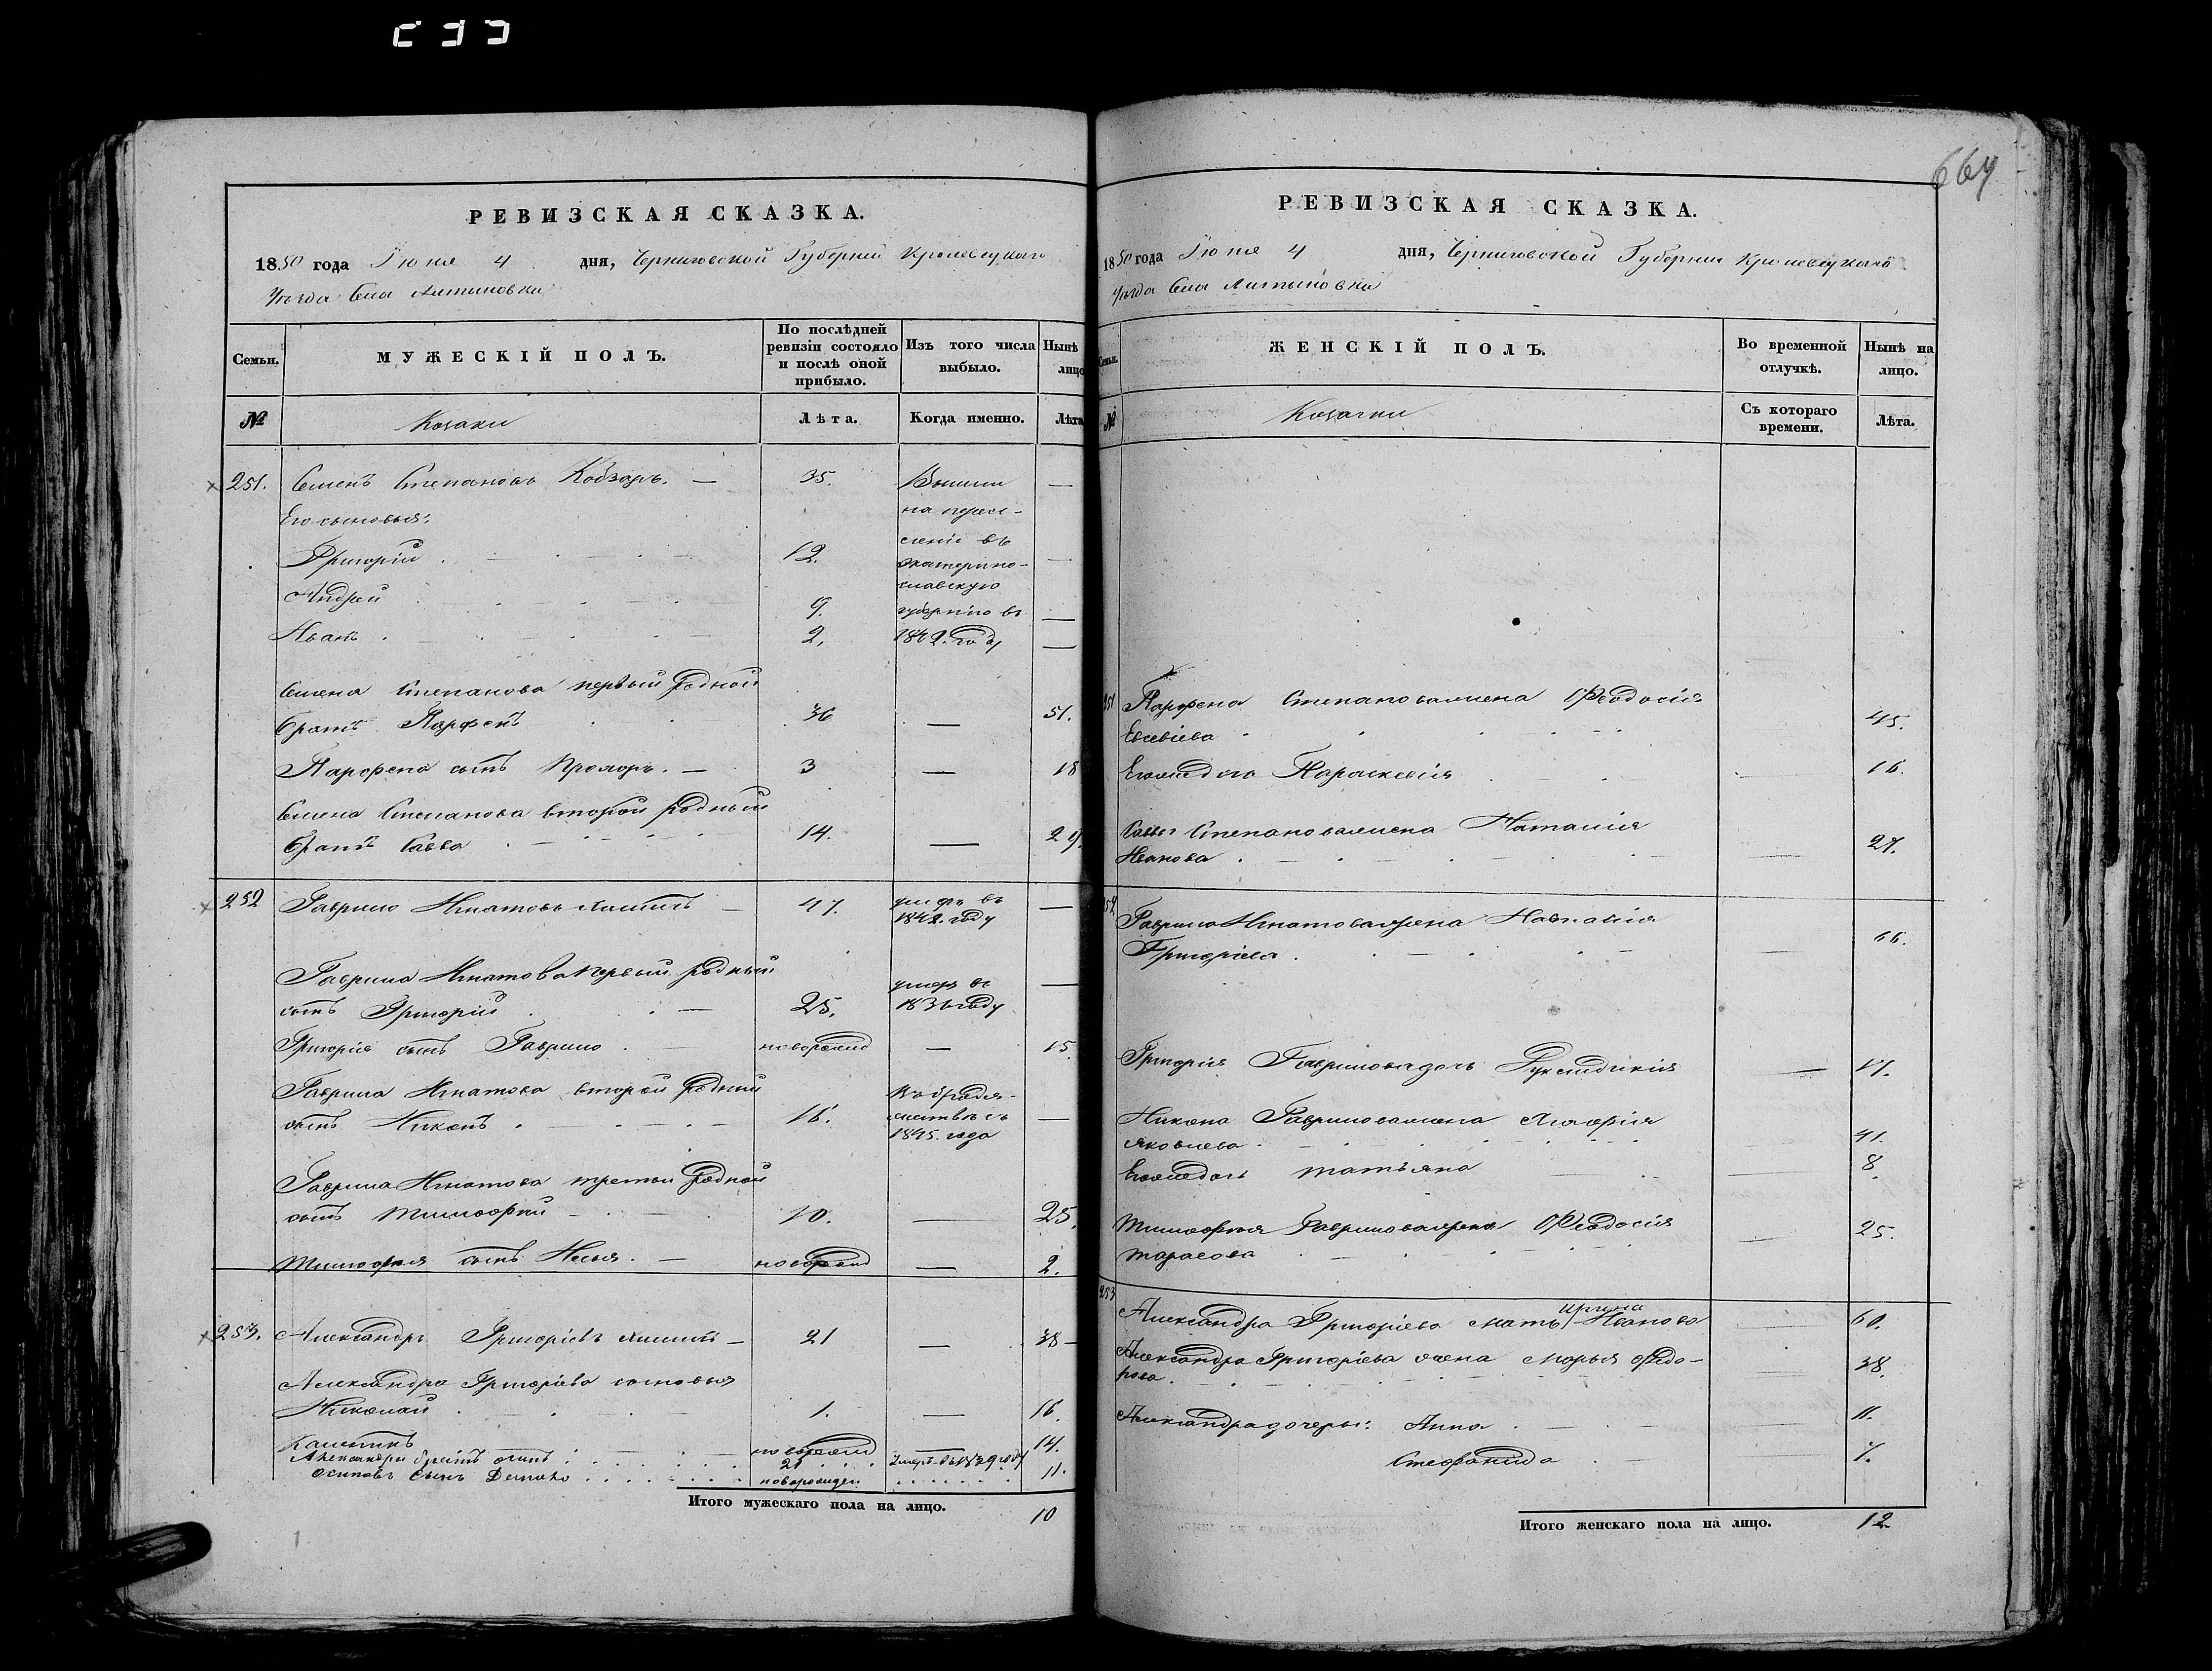 664
РЕВИЗСКАЯ СКАЗКА.
1850 года Іюня 4 дня, Черниговской Губерніи Кролевецкаго
Уѣзда Села Литвиновки
Семьи.
МУЖЕСКІЙ ПОЛЪ.
По послѣдней ревизіи состояло и послѣ оной прибыло.
Изъ того числа выбыло.
Нынѣ лицо
№
Козаки
Лѣта.
Когда именно.
Лѣта
251. Семенъ Степановъ Кобзарь. — 35. Вышли —
Его сыновья: на пересе-
Григорій 12. леніе въ —
Екатерино-
Андрей славскую
9. губернію въ —
Иванъ 2. 1842. году —
Семена Степанова первый родной
братъ Парфенъ 36 — 51.
Парфена сынъ Прохоръ. — 3 — 18
Семена Степанова второй родный
братъ Савва 14. — 29.
252 Гаврило Игнатовъ — 47. умеръ въ 1842. году —
Гаврила Игнатова первый родный
сынъ Григорій 25. умеръ въ 1836 году —
Григорія сынъ Гаврило новорожд — 15.
Гаврила Игнатова второй родный
сынъ Никонъ 16. 1845. года —
Гаврила Игнатова третій родной
сынъ Тимофей 10. — 25.
Тимофея сынъ Илья. — новорожд — 2.
253. Александръ Григоріевъ — 21 — 38
Александра Григоріева сыновья
Николай 1. — 16.
Калиникъ новорожд — 14.
Александра братъ Осипъ 21 Умеръ въ 1839 году
Осиповъ сынъ Демько новорожден 11.
Итого мужескаго пола на лицо. 10
РЕВИЗСКАЯ СКАЗКА.
1850 года Іюня 4 дня, Черниговской Губерніи Кролевецкаго
Уѣзда Села Литвиновки
Семьи.
ЖЕНСКІЙ ПОЛЪ.
Во временной отлучкѣ.
Нынѣ на лицо.
№
Козачки
Съ котораго времени.
Лѣта.
251 Парфена Степанова жена Феодосія
Евсевіева 45.
Его же дочь Параскевія — 16.
Саввы Степанова жена Наталія
Иванова — 27.
252 Гаврила Игнатова жена
Григорьева — 66.
Григорія Гаврилова дочь — 17.
Никона Гаврилова жена
Яковлева — 41.
Его же дочь Татьяна — 8.
Тимофея Гаврилова жена Феодосія
Тарасова — 25.
253 Александра Григоріева мать Ирина Иванова — 60.
Александра Григоріева жена Марья Федо-
рова — 38.
Александра дочери: Анна — 11.
Стефанида — 7.
Итого женскаго пола на лицо. 12